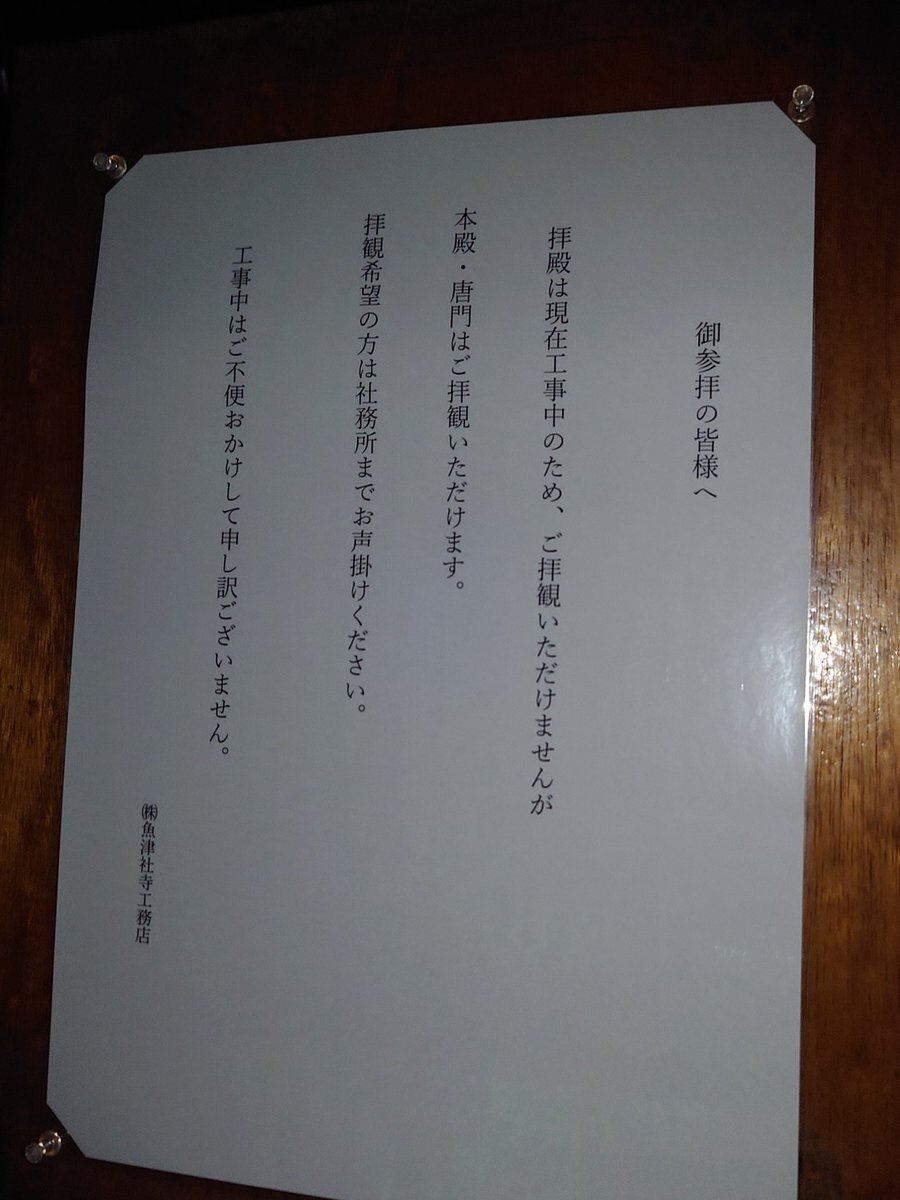 御参拝の皆様へ
拝殿は現在工事中のため、ご拝観いただけませんが
本殿・唐門はご拝観いただけます。
拝観希望の方は社務所までお声掛けください。
工事中はご不便おかけして申し訳ございません。
㈱魚津社寺工務店